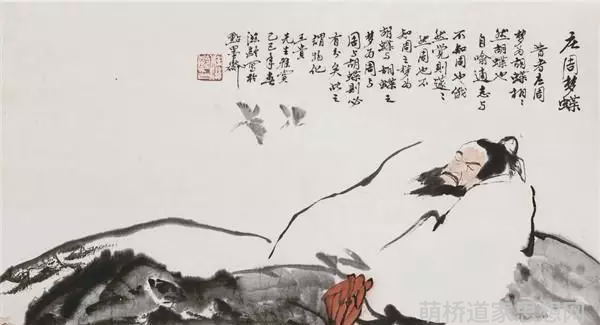 庄周梦蝶
昔者庄周
梦为胡蝶栩々
然胡蝶也
自喻适志与
不知周也俄
然觉则遽々
然周也不
知周之梦为
胡蝶与胡蝶之
梦为周与
周与胡蝶则必
有分矣此之
谓物化
先生雅赏
己巳年春
點墨斋
萌桥道家思想网